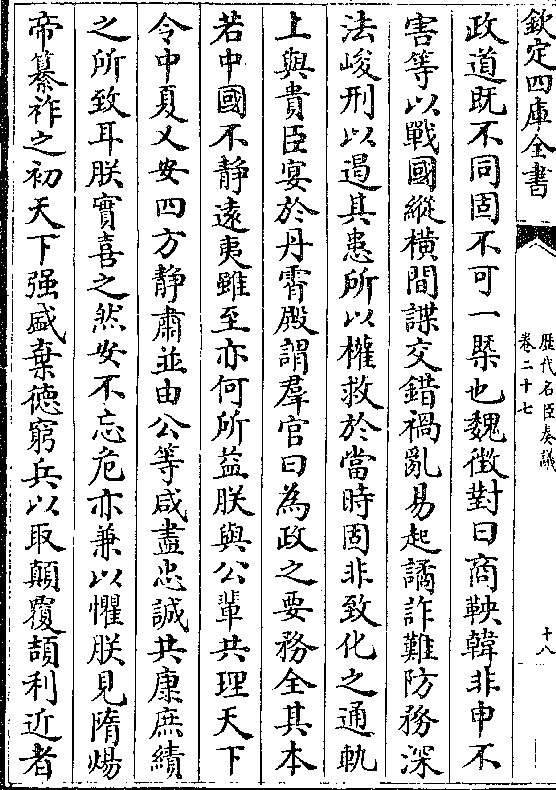 欽定四庫全書
歷代名臣奏議
卷二十七
十八
政道既不同固不可一槩也魏徵對曰商鞅韓非申不
害等以戰國縱橫間諜交錯禍亂易起譎詐難防務深
法峻刑以遏其患所以權救於當時固非致化之通軌
上與貴臣宴於丹霄殿謂羣官曰為政之要務全其本
若中國不靜遠夷雖至亦何所益朕與公輩共理天下
令中夏乂安四方静肅並由公等咸盡忠誠共康庶績
之所致耳朕實喜之然安不忘危亦兼以懼朕見隋煬
帝纂祚之初天下强盛棄德窮兵以取顛覆頡利近者